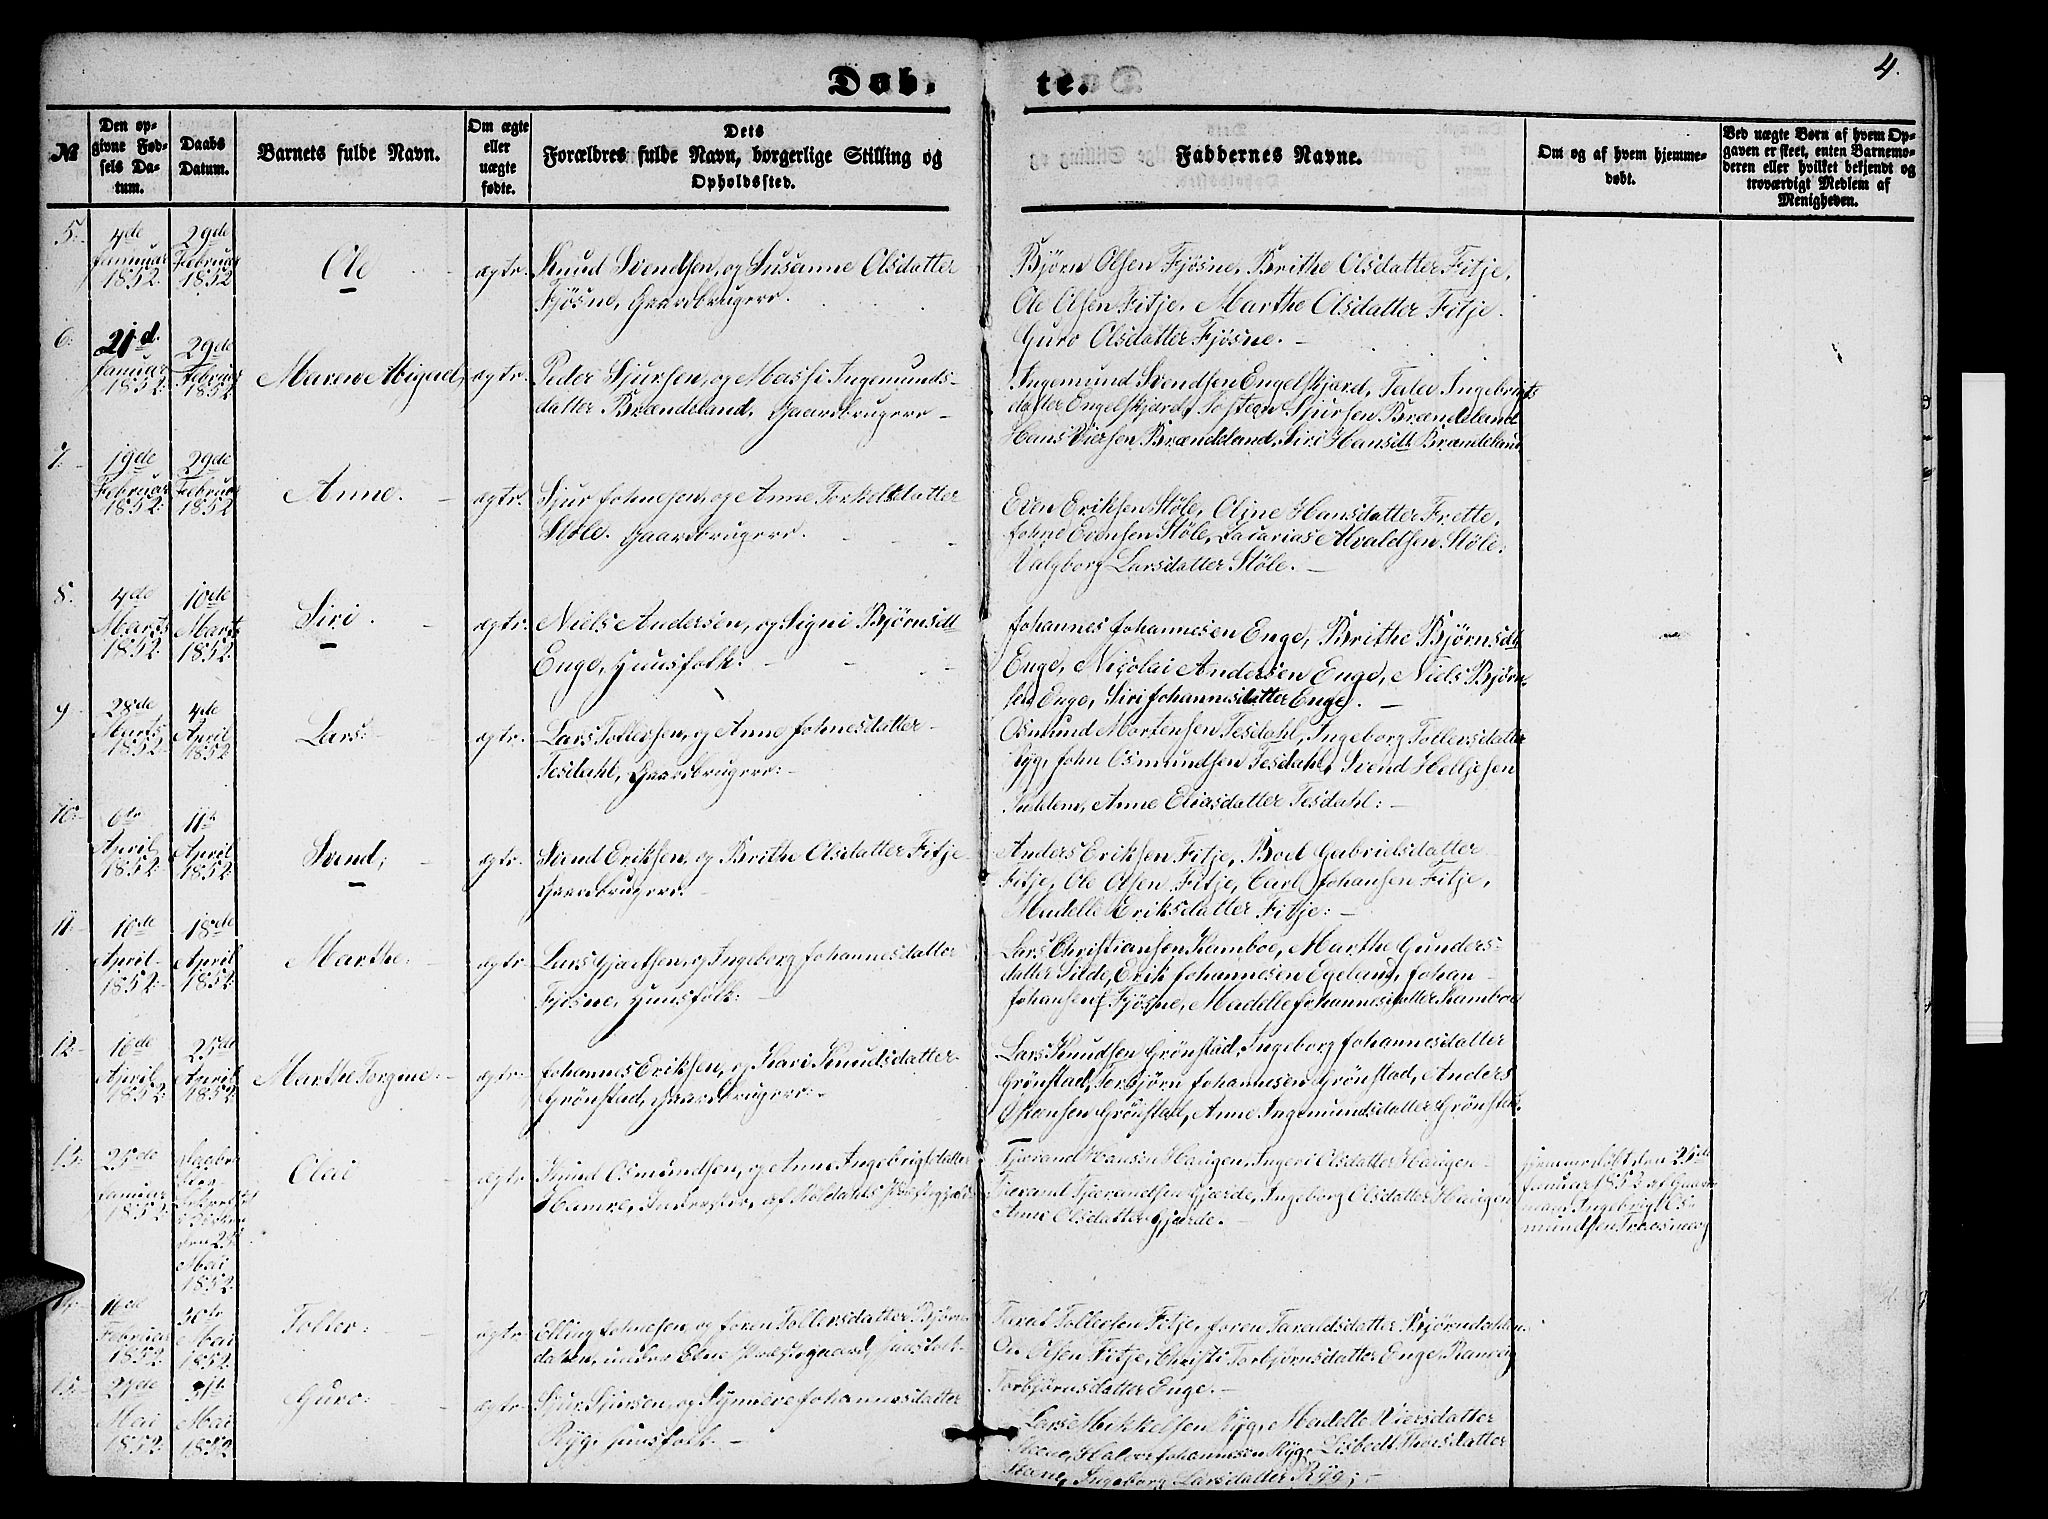 Døb-
te.
4.
№
Den op-
givne Fød-
sels Da-
tum.
Daabs
Datum.
Barnets fulde Navn.
Om ægte
eller
uægte
fødte.
Dets
Forældres fulde Navn, borgerlige Stilling og
Opholdssted.
Faddernes Navne.
Om og af hvem hjemme-
døbt.
Ved uægte Børn af hvem Op-
gaven er skeet, enten Barnemo-
deren eller hvilket bekjendt og
troværdigt Medlem af
Menigheden.
5.
4de
Januar
1852.
29de
Februar
1852
Ole
ægte.
Knud Svendsen, og Susanne Olsdatter
Fjøsne, Gaardbrugere.
Bjørn Olsen Fjøsne, Brithe Olsdatter Fitje,
Ole Olsen Fitje, Marthe Olsdatter Fitje.
Guro Olsdatter Fjøsne.
6.
21d.
Januar
1852.
29de
Februar
1852
Maren Abigael,
ægte.
Peder Sjursen, og Massi Ingemunds-
datter Brændeland, Gaardbrugere
Ingemund Svendsen Engelskjærd, Talee Ingebrigts
datter Engelskjærd, Tosten Sjursen Brændeland
Hans Viersen Brændeland, Siri Hansdtt Brændeland
7.
19de
Februar
1852.
29de
Februar
1852
Anne.
ægte.
Sjur Johnesen, og Anne Torkelsdatter
Støle. Gaardbrugere.
Even Eriksen Støle, Oline Hansdatter Frette,
Johne Evensen Støle, Zacarias Alvaldsen Støle,
Valgborg Larsdatter Støle.
8.
4de
Marts
1852.
10de
Marts
1852.
Siri.
ægte.
Niels Andersen, og Signi Bjørnsdtt
Enge, Huusfolk:
Johannes Johannesen Enge, Brithe Bjørnsdtt
Enge, Nicolai Andersen Enge, Niels Bjørn-
sen Enge, Siri Johannesdatter Enge.
9
28de
Marts
1852
4de
April
1852
Lars:
ægte.
Lars Tollersen, og Anne Johnesdatter
Tesdahl, Gaardbrugere:
Osmund Mortensen Tesdahl, Ingeborg Tollersdatter
Ryg, John Osmundsen Tesdahl, Svend Helljesen
Anne Eliasdatter Tesdahl:
10.
6te
April
1852.
11te
April
1852.
Svend;
ægte.
Svend Eriksen, og Brithe Olsdatter Fitje
Gaardbrugere.
Anders Eriksen Fitje, Boel Gabrielsdatter
Fitje, Ole Olsen Fitje, Carl Johansen Fitje,
Madelle Eriksdatter Fitje:
11.
10de
April
1852.
18de
April
1852.
Marthe:
ægte.
Lars Gjærtsen, og Ingeborg Johannesdatter
Fjøsne, Huusfolk:
Lars Christiansen Kamboe, Marthe Gunders-
datter Silde, Erik Johannesen Egeland, Johan
Johansen Fjøsne, Madelle Johannesdatter Kamboe
12.
16de
April
1852.
25de
April
1852.
Marthe Torgine:
ægte.
Johannes Eriksen, og Kari Knudsdatter
Grönstad, Gaardbrugere:
Lars Knudsen Grönstad, Ingeborg Johannesdatter
Grönstad, Torbjørn Johannesen Grönstad, Anders
Grönstad, Anne Ingemundsdatter Grönstad.
13.
25de
Januar
1852
den 23
Mai
1852.
Olai
ægte
Knud Osmundsen, og Anne Ingebrigtsdatter
Hamre, Inderster, af Røldahls Præstegjæld
Tjerand Hansen Haugen, Ingeri Olsdatter Haugen
Tjerand Tjærandsen Gjærde, Ingeborg Olsdatter Haugen
Anne Olsdatter Gjærde.
hjemmedøbt den 25de
Januar 1852 af Gaard-
mand Ingebrigt Os-
mundsen
14.
16de
Februar
1852.
30te
Mai
1852.
Toller:
ægte.
Elling Johnesen, og Joren Tollersdatter Bjørn-
dalen, under Etne Præstegaard, Huusfolk.
Taral Tollersen Fitje, Joren Taraldsdatter Bjørndalen
Ole Olsen Fitje, Christi Torbjørnsdatter Enge, Ranveig
Torbjørnsdatter Enge.
15.
27de
Mai
1852.
31te
Mai
1852
Guro:
ægte.
Sjur Sjursen, og Synneve Johannesdatter
Ryg, Huusfolk.
Lars Mikkelsen Ryg, Madelle Viersdatter
Skeene, Halvor Johannesen Ryg, Lisbedt Thoresdatter
Skeene, Ingeborg Larsdatter Ryg;